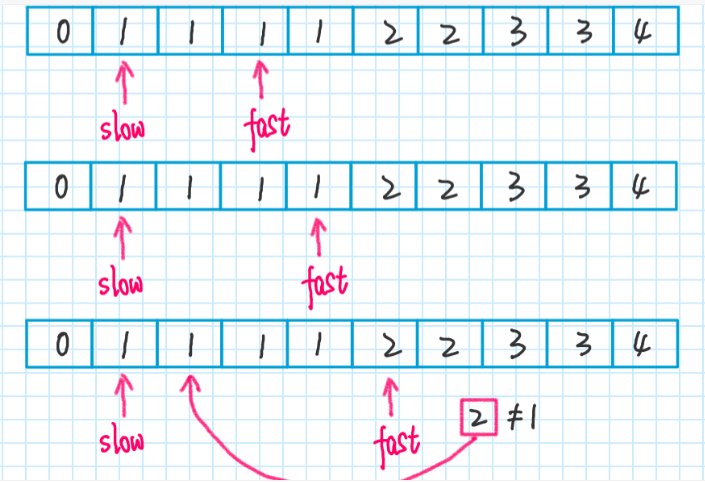 0 1 1 1 1 2 2 3 3 4
slow fast
0 1 1 1 1 2 2 3 3 4
slow fast
0 1 1 1 1 2 2 3 3 4
2 ≠1
slow fast